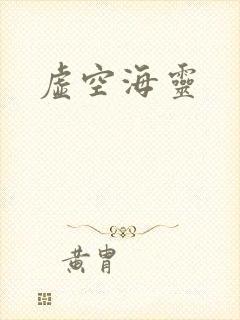 虛空海靈
黃胄